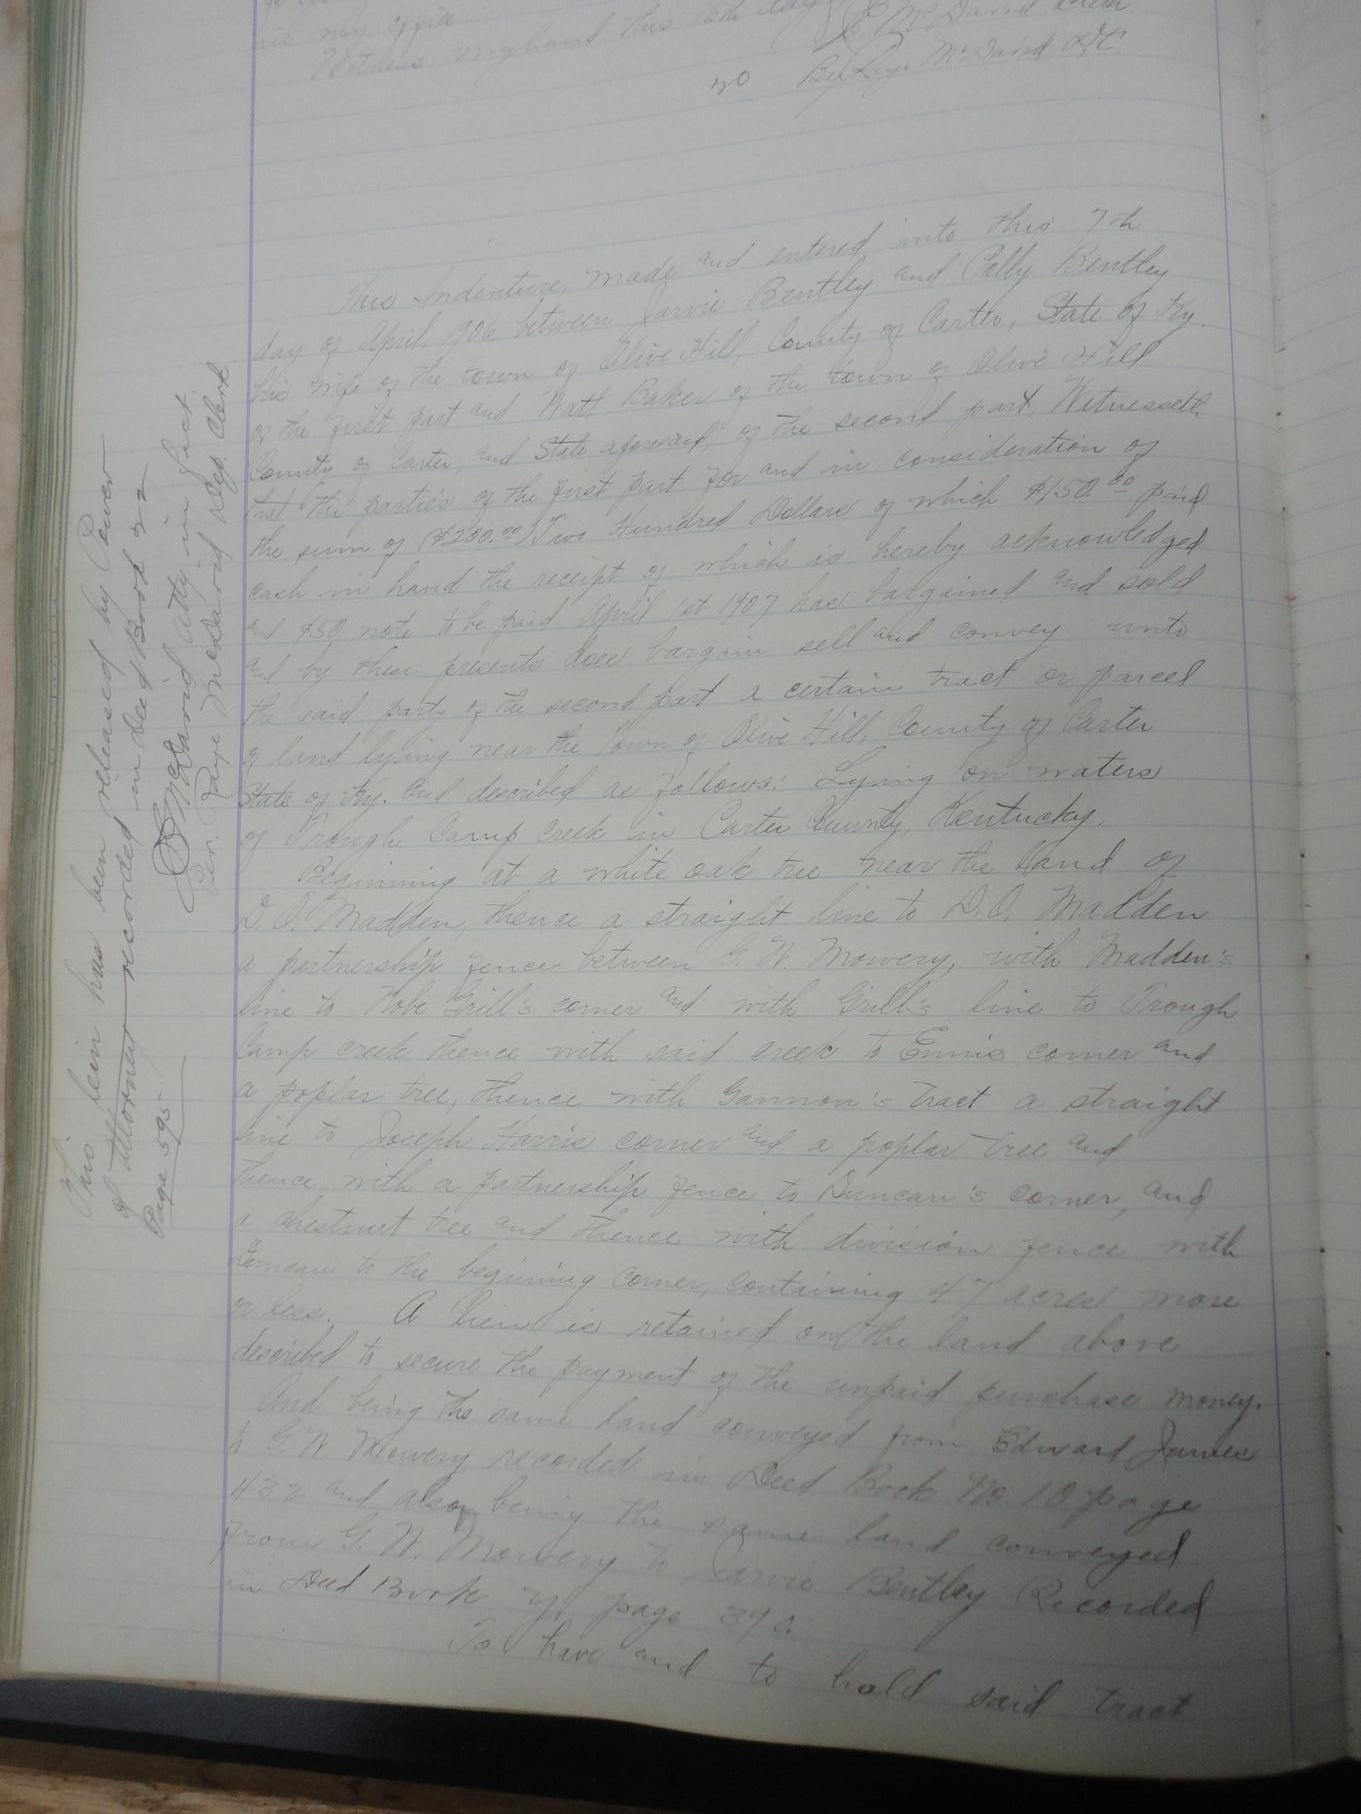 his my office
Witness my hand this 16th day
McDavid Clerk
no By Ray. McDavid D.C.
This Indenture, made and entered into this 7th
day of April, 1906, between Jarvie Bentley and Polly Bentley
his wife of the town of Olive Hill, County of Carter, State of Ky.
of the first part and Watt Baker of the town of Olive Hill
County of Carter, and State aforesaid, of the second part, Witnesseth,
that the parties of the first part for and in consideration of
the sum of ($200.00) Two Hundred Dollars of which $150.00 paid
cash in hand the receipt of which is hereby acknowledged
and $50 note to be paid April 1st 1907 has bargained and sold
and by these presents does bargain sell and convey unto
the said party of the second part a certain tract or parcel
of land lying near the town of Olive Hill, County of Carter
State of Ky. and described as follows: Lying on waters
of Trough Camp Creek in Carter County, Kentucky.
Beginning at a white oak tree near the land of
D.O. Madden, thence a straight line to D.O. Madden
a partnership fence between G. W. Mowery, with Madden's
line to Grill's corner and with Grill's line to Trough
Camp creek thence with said creek to Ennis corner and
a poplar tree, thence with Gannon's tract a straight
line to Joseph Harris corner and a poplar tree and
thence with a partnership fence to Duncan's corner, and
a chestnut tree and thence with division fence with
Duncan to the beginning corner, containing 47 acres more
or less. A lien is retained on the land above
described to secure the payment of the unpaid purchase money.
And being the same land conveyed from Edward James
to G. W. Mowery recorded in Deed Book No. 10 page
432 and also being the same land conveyed
from G. W. Mowery to Jarvie Bentley Recorded
in Deed Book page
To have and to hold said tract
This lein has been released by Power
of Attorney recorded in deed Book 22
Page 595
McDavid Atty in fact
Per. Raye McDavid Dep. Clerk